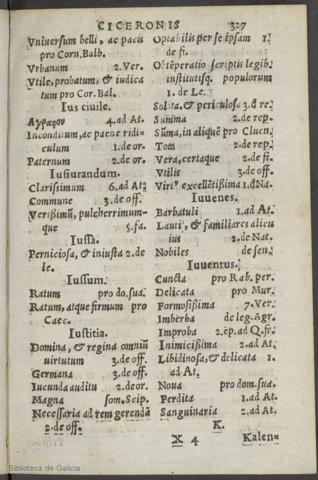 CICERONIS 327
Vniuersum belli, ac pacis
pro Corn. Balb.
Vrbanum 2. Ver.
Vtile, probatum, & iudica
tum pro Cor. Bal.
Ius ciuile.
Αγραφον 4. ad At.
Inconditum, ac paene ridi-
culum 1. de or.
Paternum 2. de or.
Iusiurandum.
Clarissimum 6. ad At.
Commune 3. de off.
Verissimũ, pulcherrimum-
que 5. fa.
Iussa.
Perniciosa, & iniusta 2. de
le.
Iussum.
Ratum pro do. sua.
Ratum, atque firmum pro
Caec.
Iustitia.
Domina, & regina omniũ
uirtutum 3. de off.
Germana 3. de off.
Iucunda auditu 2. de or.
Magna som. Scip.
Necessaria ad rem gerendã
2. de off.
Optabilis per se ipsam 1.
de fi.
Obtẽperatio scriptis legib.
institutisq. populorum
1. de Le.
Solita, & periculosa 3. d re.
Summa 2. de rep.
Sũma, in aliquẽ pro Cluen.
Tota 2. de rep.
Vera, certaque 2. de fi.
Vtilis 3. de off.
Virt⁹ excellẽtissima 1. d Na.
Iuuenes.
Barbatuli 1. ad At.
Lauti, & familiares alicu
ius 2. de Nat.
Nobiles de sen.
Iuuentus.
Cuncta pro Rab. per.
Delicata pro Mur.
Formosissima 7. Ver.
Imberba de leg. Agr.
Improba 2. ep. ad Q. fr.
Inimicissima 2. ad At.
Libidinosa, & delicata 1.
ad At.
Noua pro dom. sua.
Perdita 1. ad At.
Sanguinaria 2. ad At.
K.
X 4 Kalen=
Biblioteca de Galicia